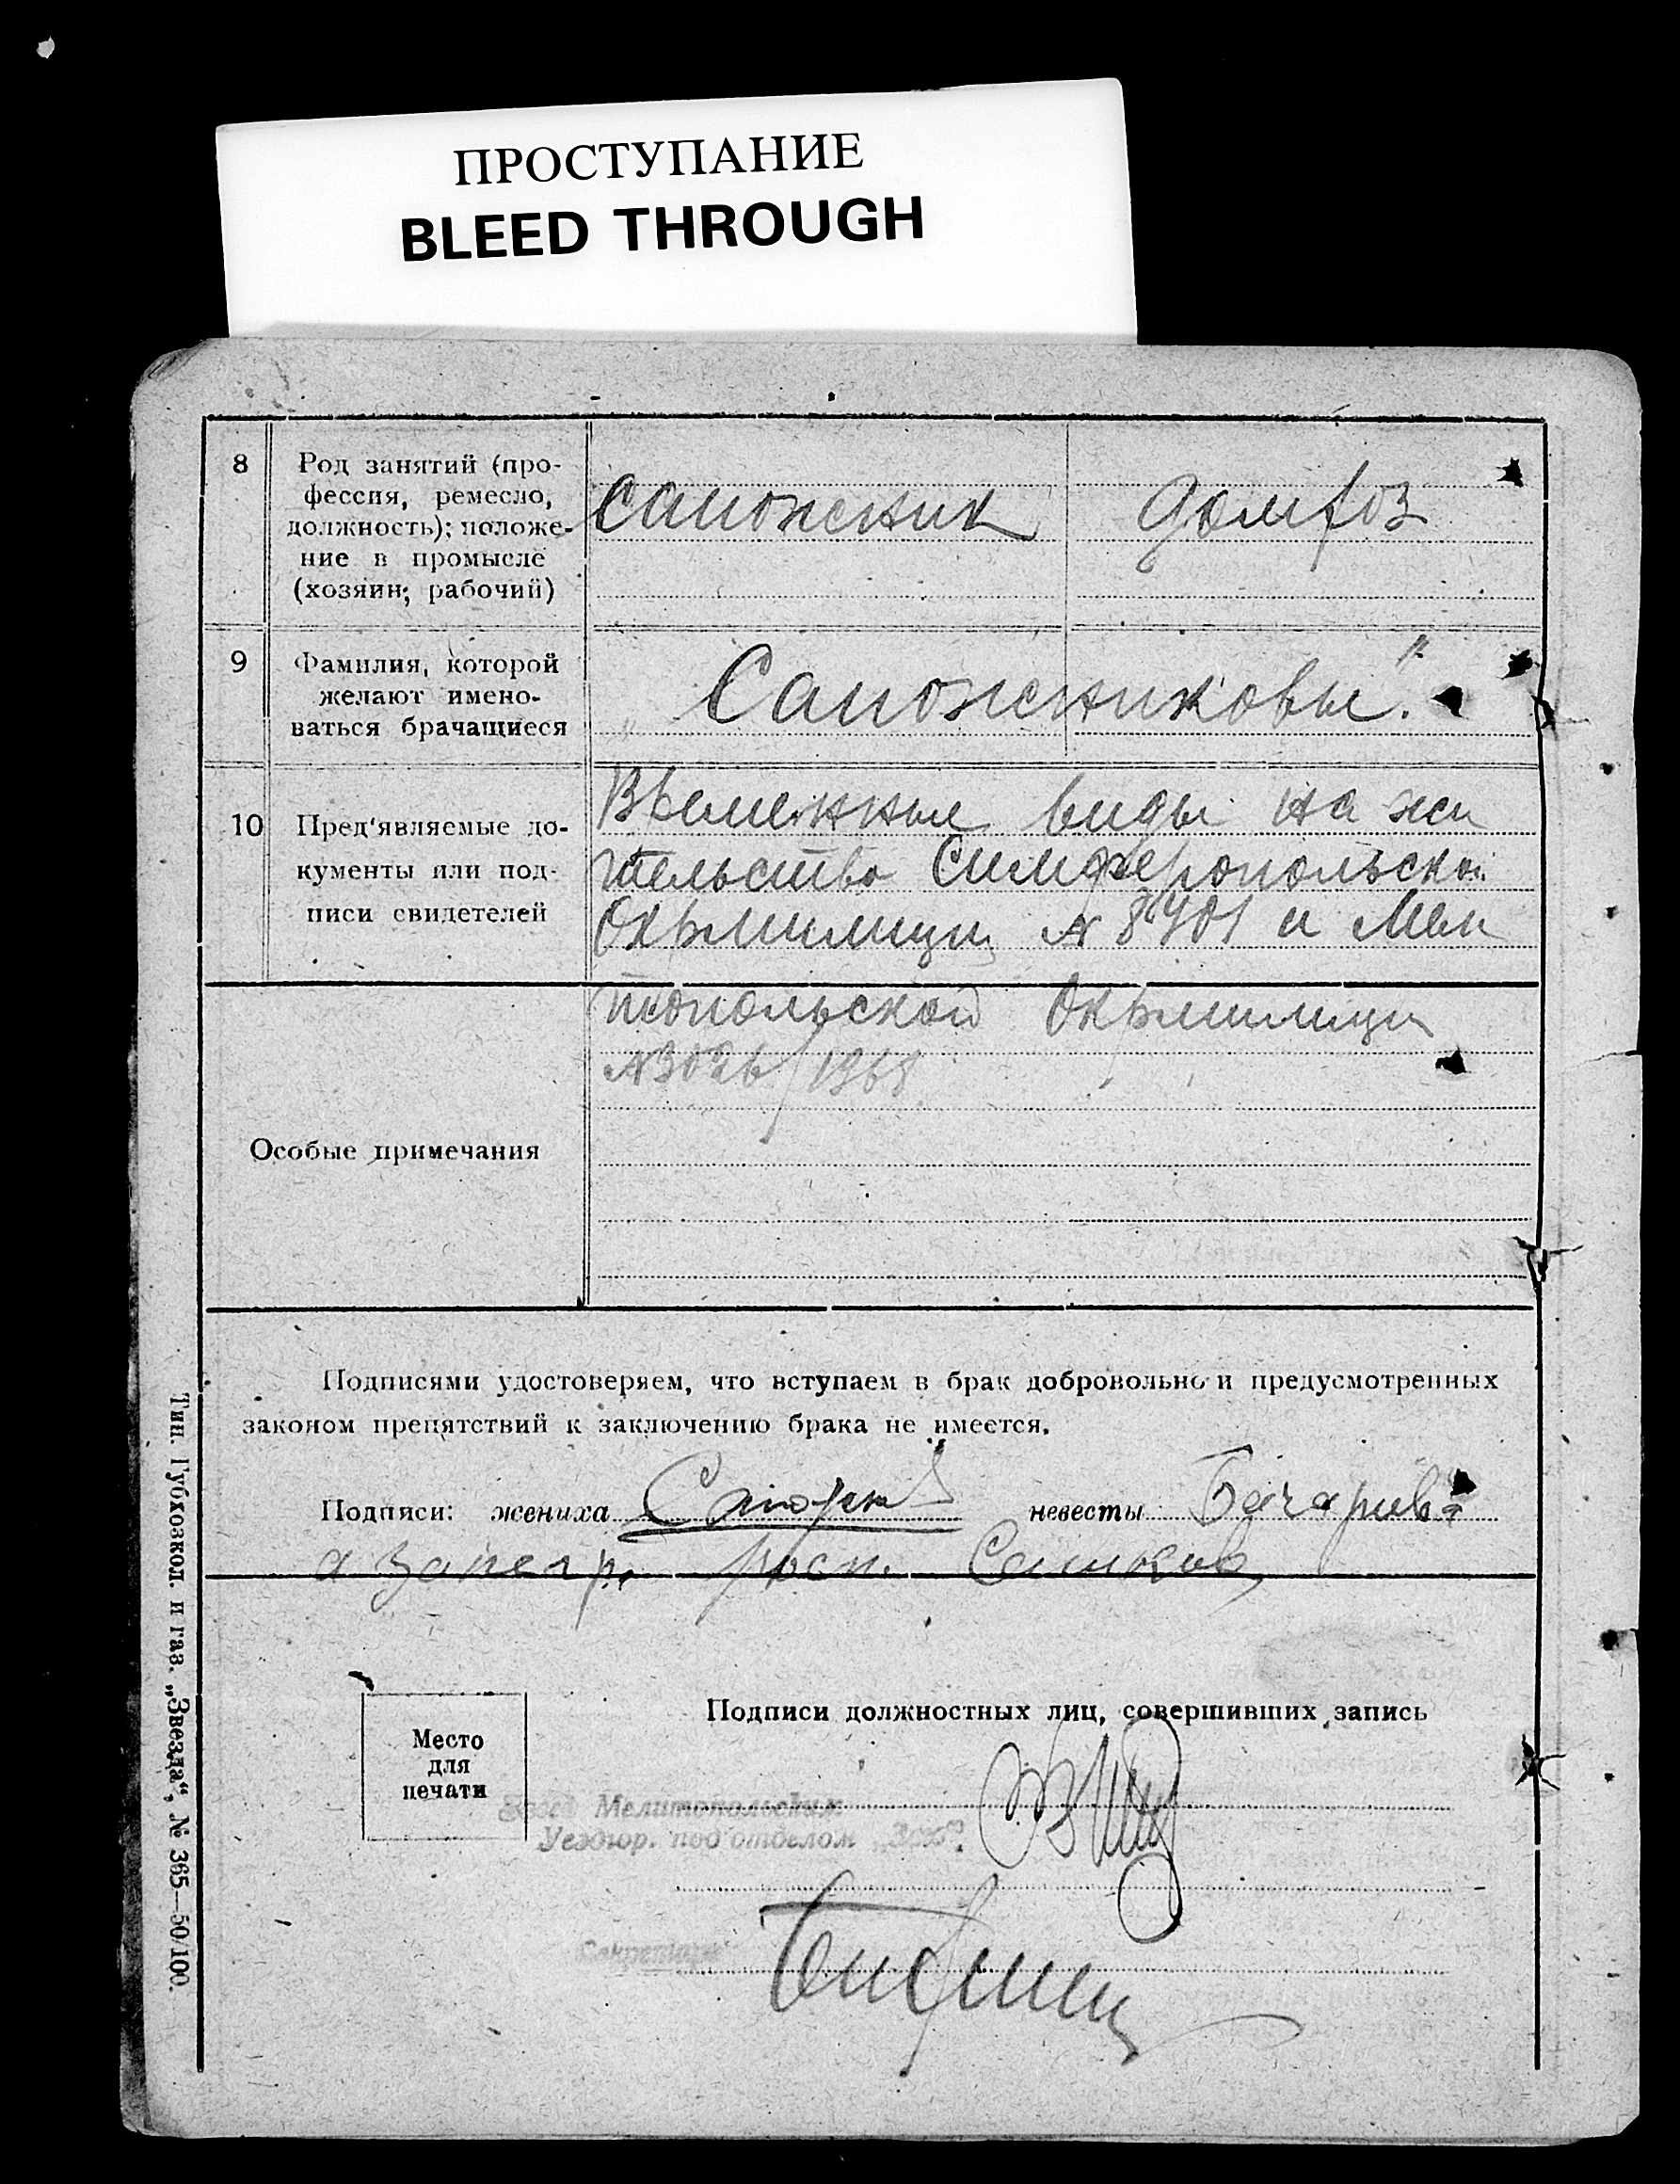 ПРОСТУПАНИЕ
BLEED THROUGH
8 Род занятий (про-
фессия, ремесло,
должность); положе-
ние в промысле
(хозяин; рабочий)
сапожник домхоз
9 Фамилия, которой
желают имено-
ваться брачащиеся
„Сапожниковы."
10 Пред'являемые до-
кументы или под-
писи свидетелей
Временные виды на жи
тельство Симферопольской
Окрмилиции № 8401 и Мели
топольской Окрмилиции
№3026/1968
Особые примечания
Подписями удостоверяем, что вступаем в брак добровольно и предусмотренных
законом препятствий к заключению брака не имеется.
Подписи: жениха невесты
Место
для
печати
Подписи должностных лиц, совершивших запись
Завед Мелитопольским
Уездюр. подотделом
Секретарь
Тип. Губхозкол. и газ. „Звезда“, № 365—50/100.